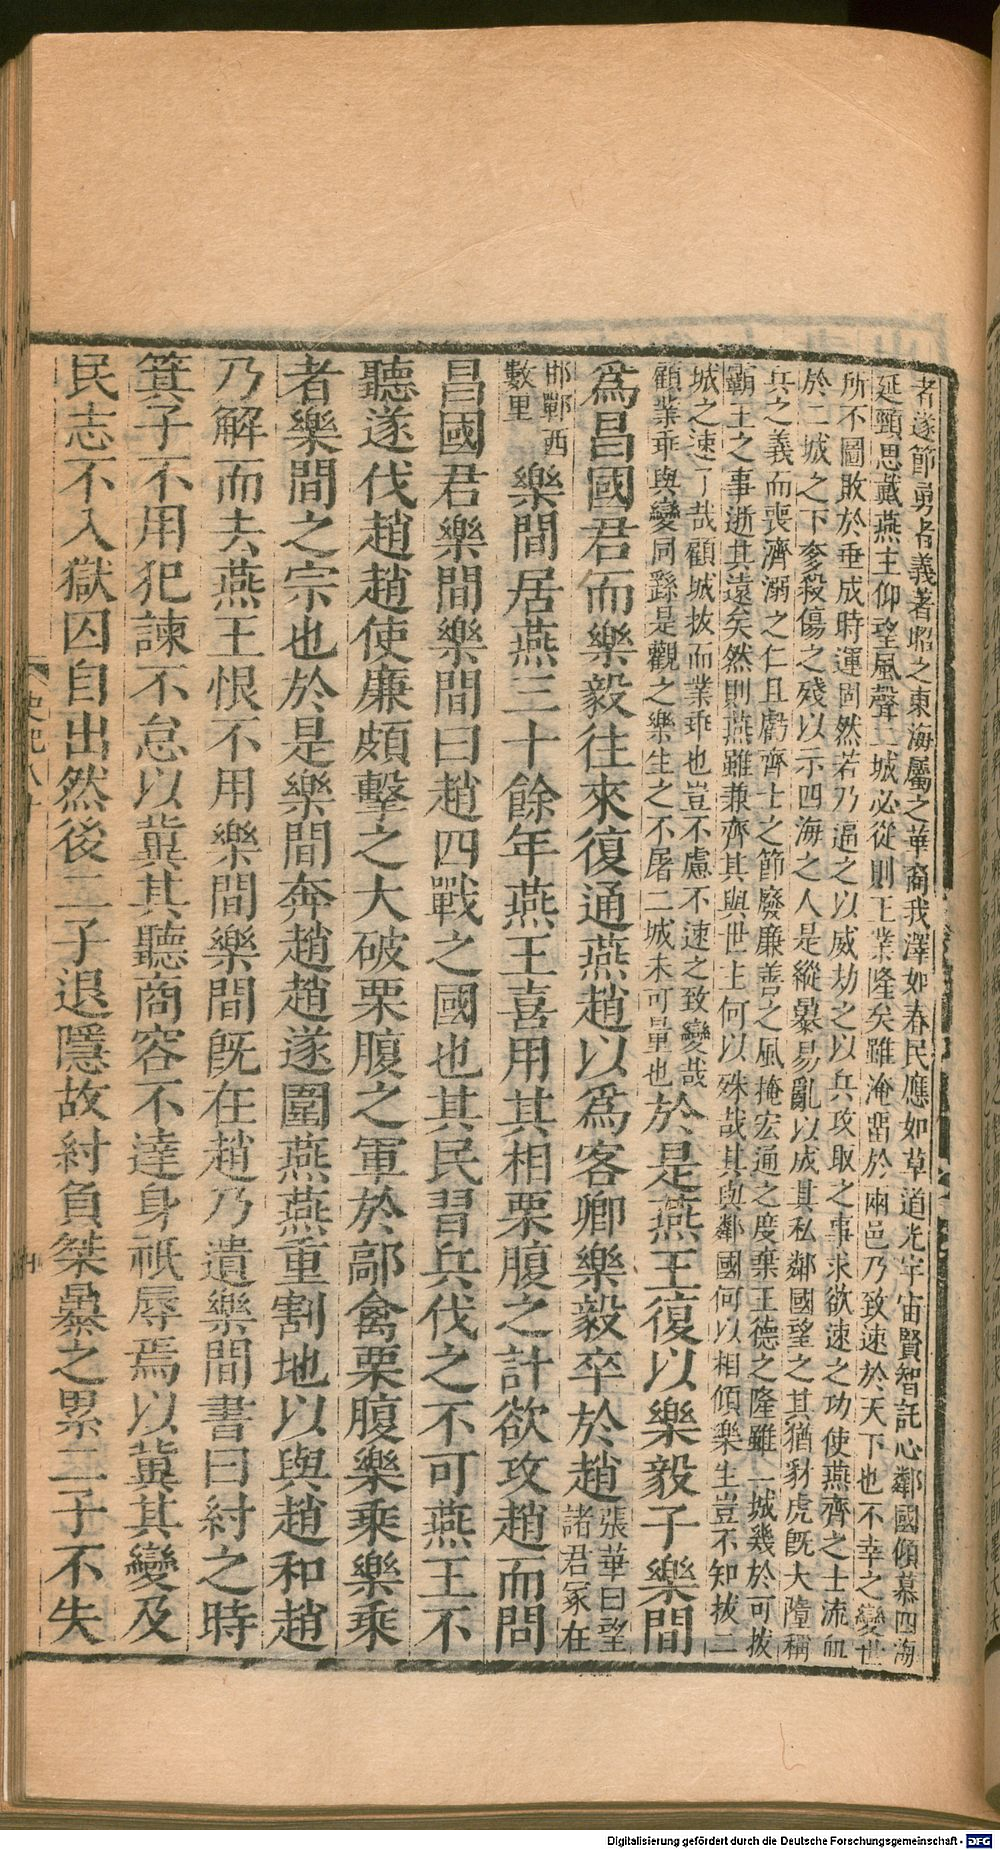 者遂節勇者義著昭之東海屬之華裔我澤如春民應如草道光宇宙賢智託心鄰國傾慕四海
延頸思戴燕主仰望風聲二城必從則王業隆矣雖淹留於兩邑乃致速於天下也不幸之變世
所不圖敗於垂成時運固然若乃逼之以威劫之以兵攻取之事求欲速之功使燕齊之士流血
於二城之下奓殺傷之殘以示四海之人是縱暴易亂以成其私鄰國望之其猶豺虎既大墮稱
兵之義而喪濟溺之仁且虧齊士之節廢廉善之風掩宏通之度棄王德之隆雖二城幾於可拔
霸王之事逝其遠矣然則燕雖兼齊其與世主何以殊哉其與鄰國何以相傾樂生豈不知拔二
城之速了哉顧城拔而業乖也豈不慮不速之致變哉
顧業乖與變同繇是觀之樂生之不屠二城未可量也於是燕王復以樂毅子樂間
爲昌國君而樂毅往來復通燕趙以爲客卿樂毅卒於趙張華曰望諸君冢在
邯鄲西數里樂間居燕三十餘年燕王喜用其相栗腹之計欲攻趙而問
昌國君樂間樂間曰趙四戰之國也其民習兵伐之不可燕王不
聽遂伐趙趙使廉頗擊之大破栗腹之軍於鄗禽栗腹樂乘樂乘
者樂間之宗也於是樂間奔趙趙遂圍燕燕重割地以與趙和趙
乃解而去燕王恨不用樂間樂間既在趙乃遺樂間書曰紂之時
箕子不用犯諫不怠以冀其聽商容不達身祇辱焉以冀其變及
民志不入獄囚自出然後二子退隱故紂負桀暴之累二子不失
史記八十
Digitalisierung gefördert durch die Deutsche Forschungsgemeinschaft - DFG